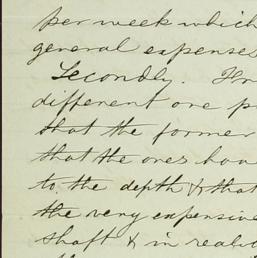 per week which
general expenses
Secondly.
different ore
that the former
that the ores
to the depth & that
the very expensive
shaft & in